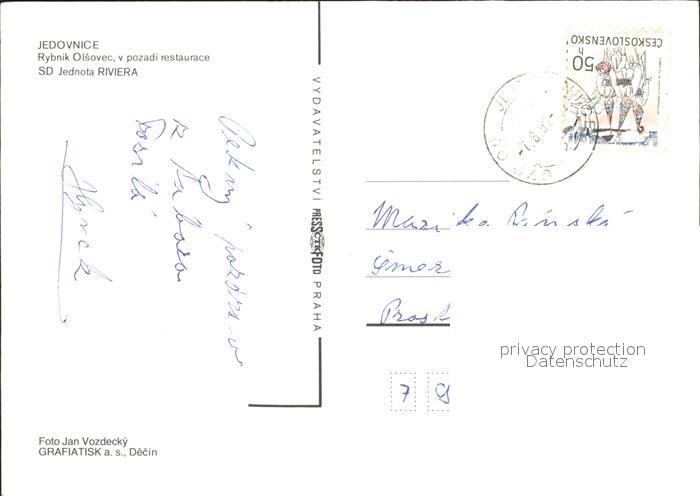 JEDOVNICE
Rybník Olšovec, v pozadí restaurace
SD Jednota RIVIERA
Pekný pozdrav
z Tábora
posílá
VYDAVATELSTVÍ PRESSFOTO PRAHA
50 h
ČESKOSLOVENSKO
-7.8.9
Marika
Prost
7 9
privacy protection
Datenschutz
Foto Jan Vozdecký
GRAFIATISK a. s., Děčín